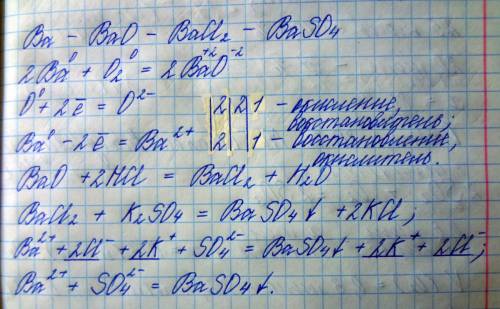 Ba – BaO – BaCl₂ – BaSO₄
2Ba⁰ + O₂⁰ = 2Ba⁺²O⁻²
O⁰ + 2ē = O²⁻ | 2 | 2 | 1 – окисление, восстановитель;
Ba⁰ – 2ē = Ba²⁺ | 2 | | 1 – восстановление, окислитель.
BaO + 2HCl = BaCl₂ + H₂O
BaCl₂ + K₂SO₄ = BaSO₄↓ + 2KCl;
Ba²⁺ + 2Cl⁻ + 2K⁺ + SO₄²⁻ = BaSO₄↓ + 2K⁺ + 2Cl⁻;
Ba²⁺ + SO₄²⁻ = BaSO₄↓.